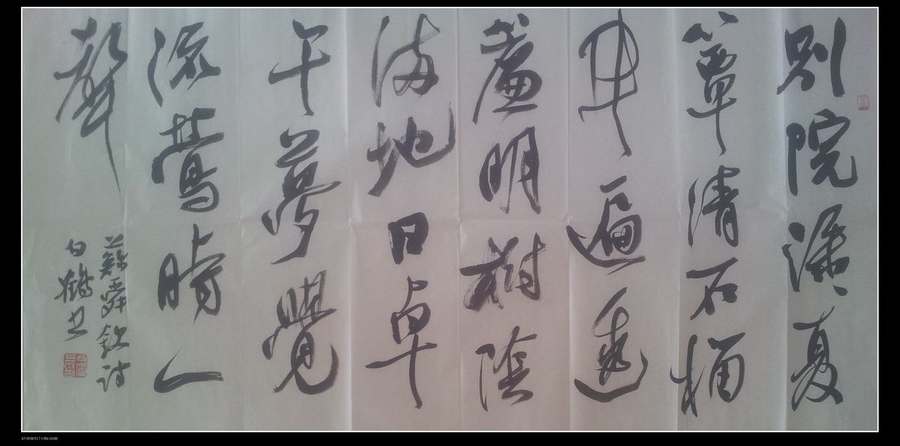 別院深〻夏
簟清石榴
開遍透
簾明樹陰
滿地日卓
午夢覺
流鶯時一
聲
蘇舜欽詩
白鶴书